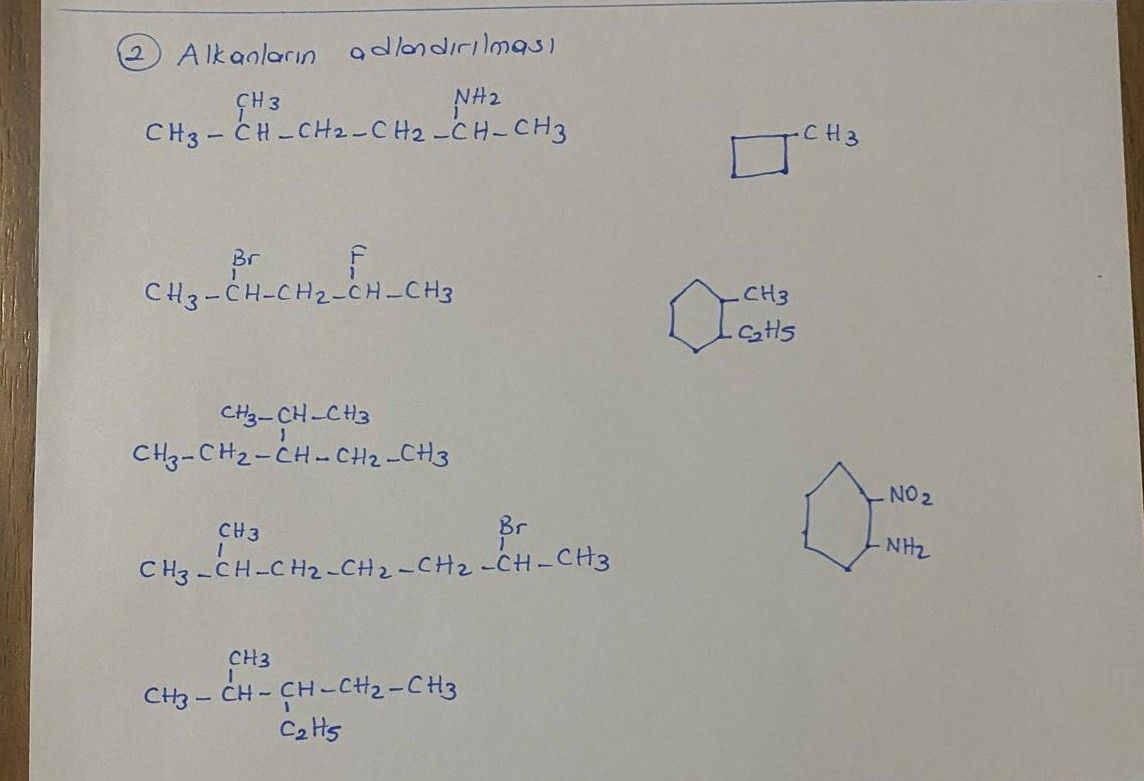 2 Alkanların adlandırılması
CH3 NH2
CH3-CH-CH2-CH2-CH-CH3
CH3
Br F
CH3-CH-CH2-CH-CH3
CH3
C2H5
CH3-CH-CH3
CH3-CH2-CH-CH2-CH3
NO2
NH2
CH3 Br
CH3-CH-CH2-CH2-CH2-CH-CH3
CH3
CH3-CH-CH-CH2-CH3
C2H5